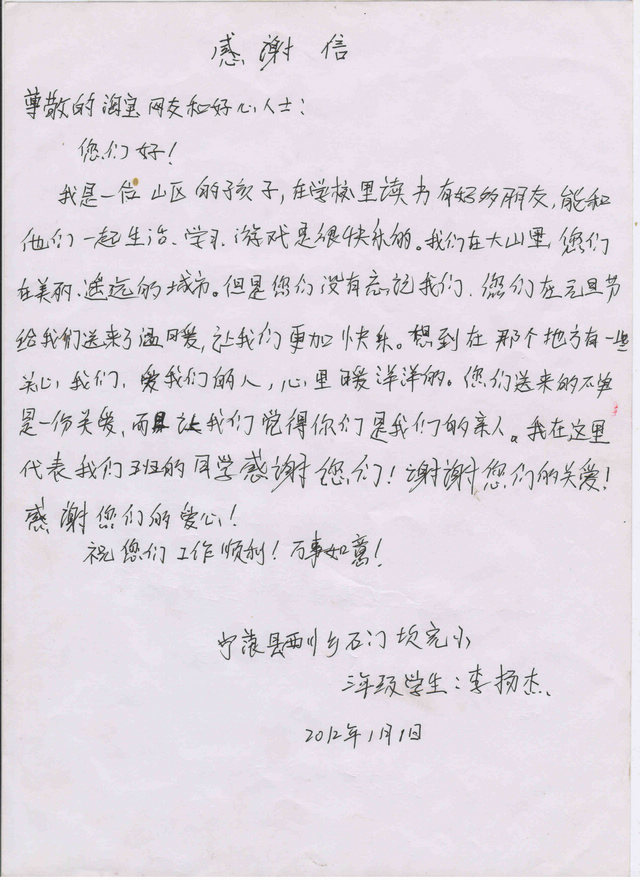 感谢信
尊敬的淘宝网友和好心人士：
您们好！
我是一位山区的孩子，在学校里读书有好多朋友，能和
他们一起生活、学习、游戏是很快乐的。我们在大山里，您们
在美丽、遥远的城市。但是您们没有忘记我们，您们在元旦节
给我们送来了温暖，让我们更加快乐。想到在那个地方有一些
关心我们，爱我们的人，心里暖洋洋的。您们送来的不单
是一份关爱，而是让我们觉得你们是我们的亲人。我在这里
代表我们班的同学感谢您们！谢谢您们的关爱！
感谢您们的爱心！
祝您们工作顺利！万事如意！
宁蒗县西川乡石门坎完小
三年级学生：李扬杰
2012年1月1日